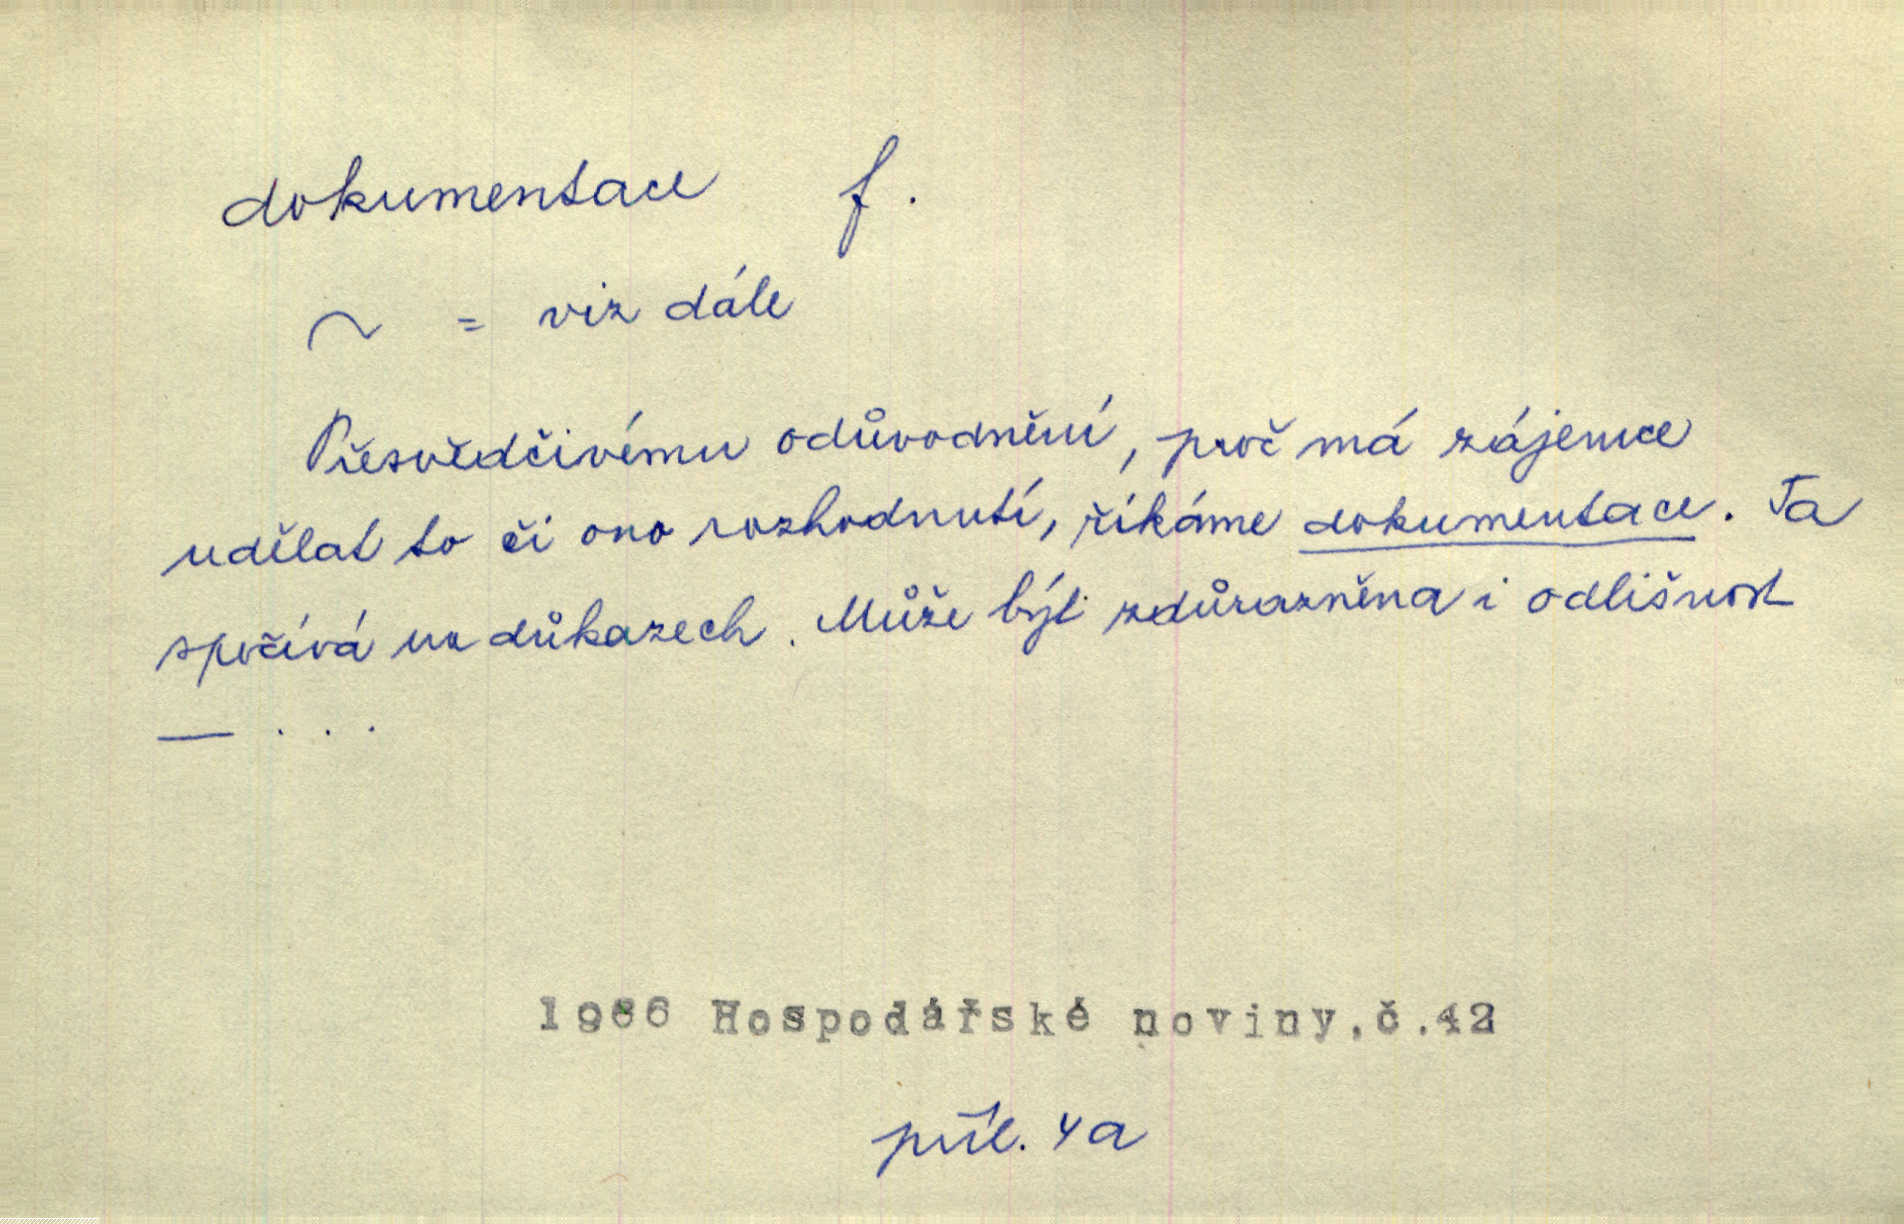 dokumentace f.
~ = viz dále
Přesvědčivému odůvodnění, proč má zájemce
udělat to či ono rozhodnutí, říkáme dokumentace. Ta
spočívá na důkazech. Může být zdůrazněna i odlišnost
— . . .
1966 Hospodářské noviny,č.42
příl. 4a